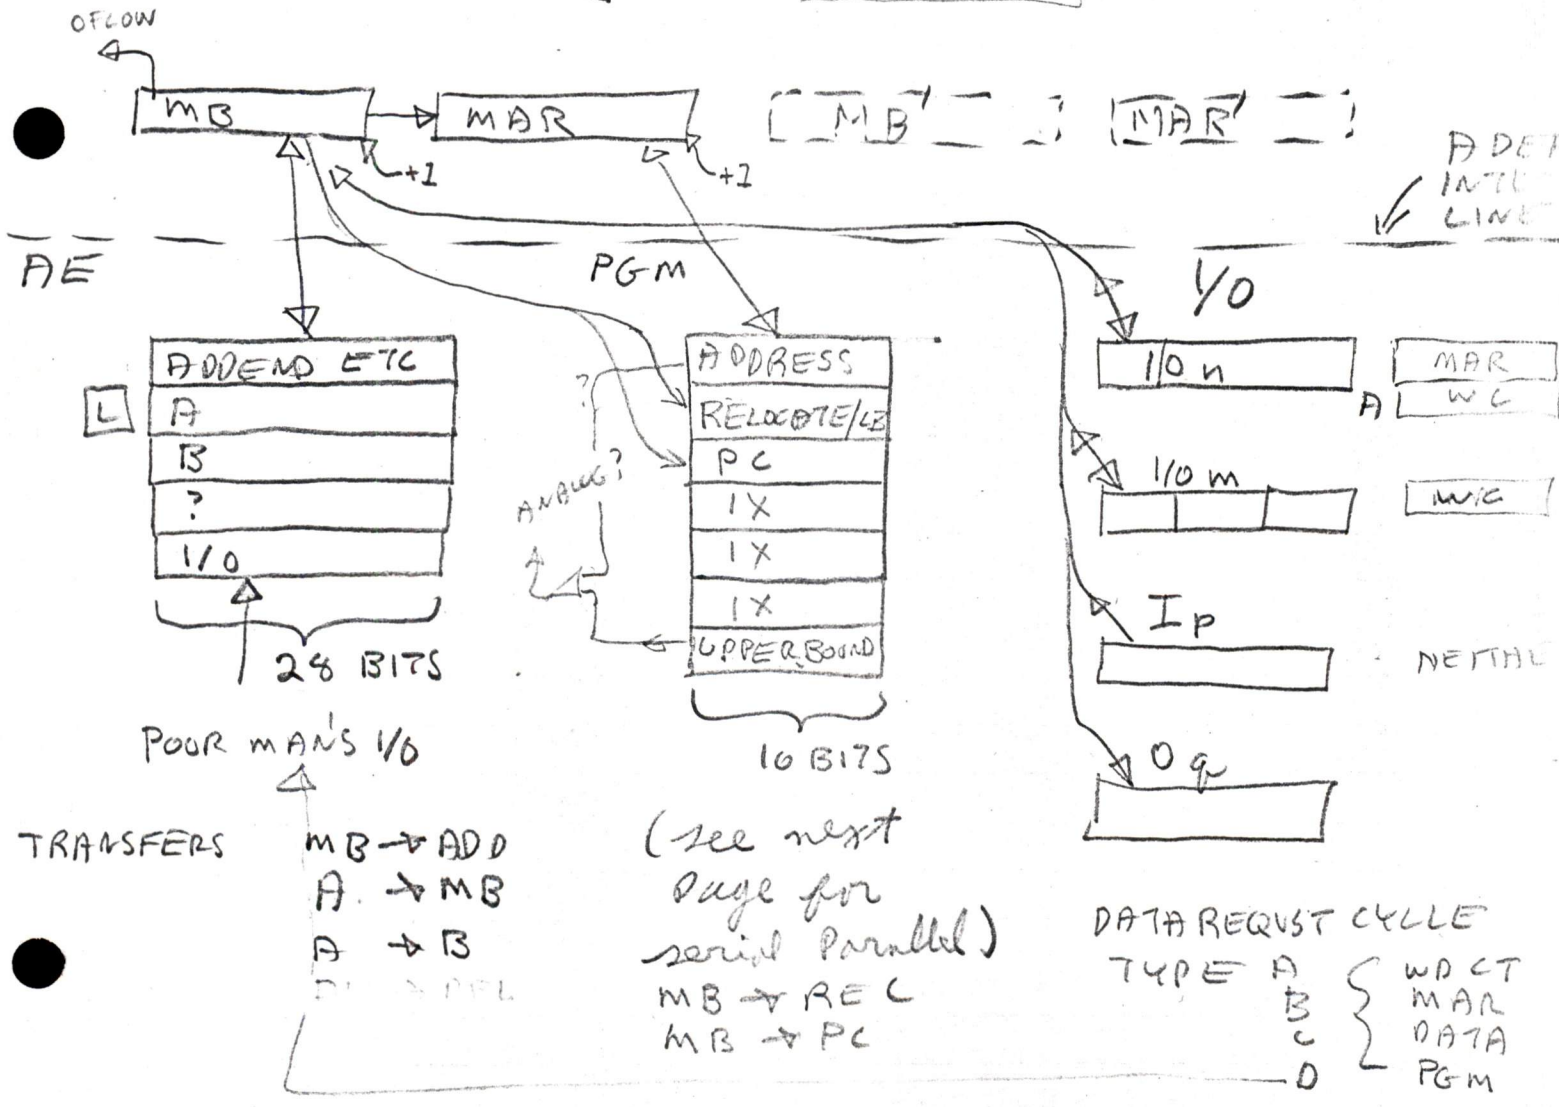 OFLOW
MB
MAR
MB'
MAR'
+1
+1
LINE
AE
PGM
I/O
ADDEND ETC
L
A
B
?
I/O
28 BITS
POOR MAN'S I/O
?
ANALOG?
ADDRESS
RELOCATE/LB
PC
IX
IX
IX
UPPER BOUND
16 BITS
I/O n
MAR
A
WC
I/O m
WC
Ip
Oq
TRANSFERS
MB → ADD
A → MB
A → B
(see next
page for
serial Parallel)
MB → REC
MB → PC
DATA REQUST CYCLE
TYPE A
B
C
D
WD CT
MAR
DATA
PGM